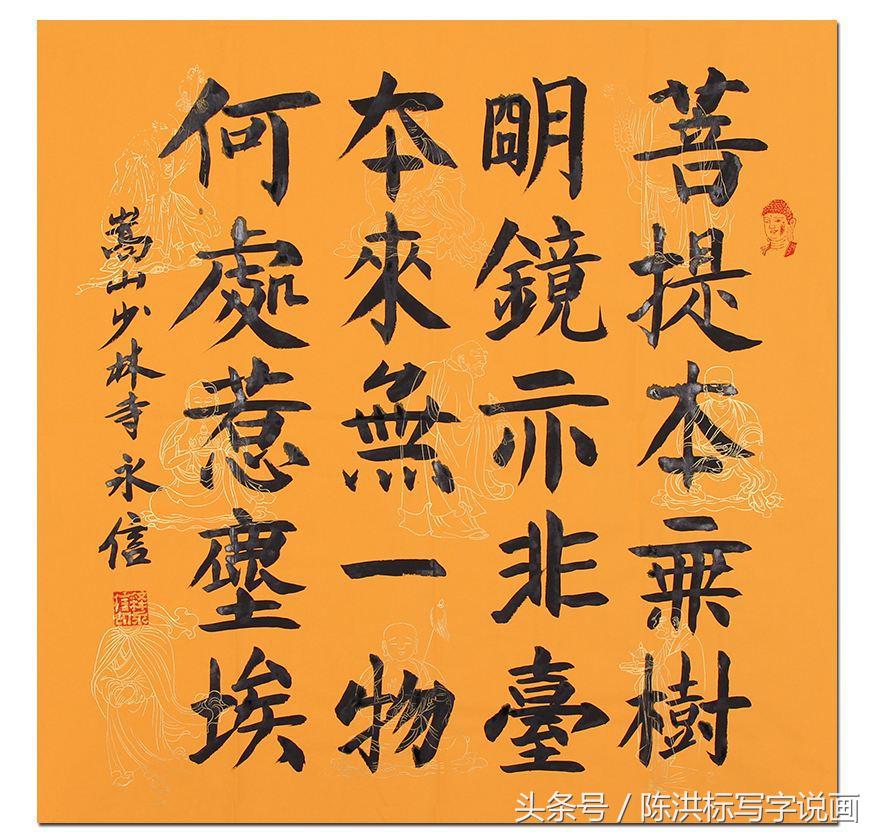 菩提本無樹
明鏡亦非臺
本來無一物
何處惹塵埃
嵩山少林寺永信
头条号 / 陈洪标写字说画